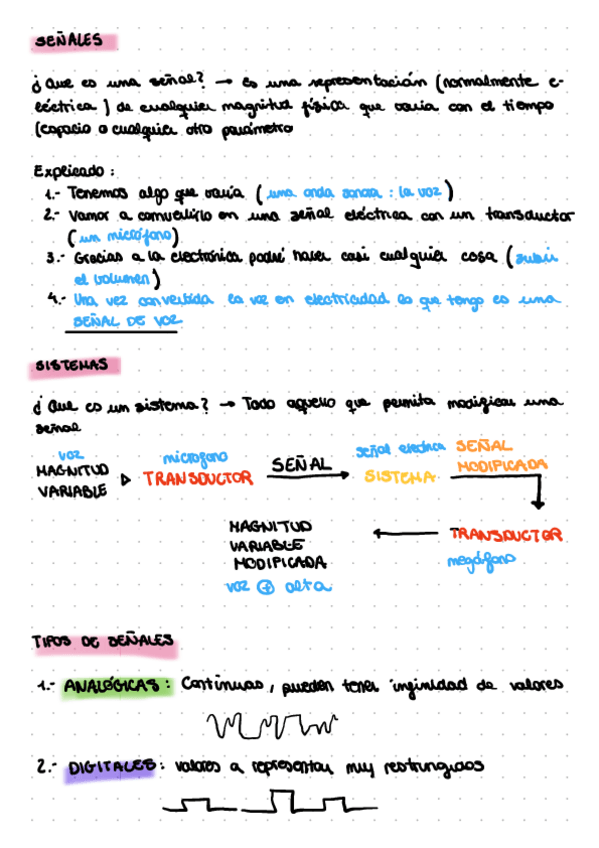 SEÑALES
¿Que es una señal? → Es una representación (normalmente e-
léctrica ) de cualquier magnitud física que varia con el tiempo
(espacio o cualquier otro parámetro
Explicado :
1.- Tenemos algo que varía ( una onda sonora : la voz )
2.- Vamos a convertirlo en una señal eléctrica con un transductor
( un micrófono)
3.- Gracias a la electrónica podré hacer casi cualquier cosa ( subir
el volumen )
4.- Una vez convertida la voz en electricidad lo que tengo es una
SEÑAL DE VOZ
SISTEMAS
¿ Que es un sistema? → Todo aquello que permita modificar una
señal
voz microfono señal electrica SEÑAL
MAGNITUD TRANSDUCTOR SEÑAL SISTEMA MODIFICADA
VARIABLE
MAGNITUD TRANSDUCTOR
VARIABLE megáfono
MODIFICADA
voz + alta
TIPOS DE SEÑALES
1.- ANALÓGICAS : Continuas, pueden tener infinidad de valores
2.- DIGITALES : valores a representar muy restringidos